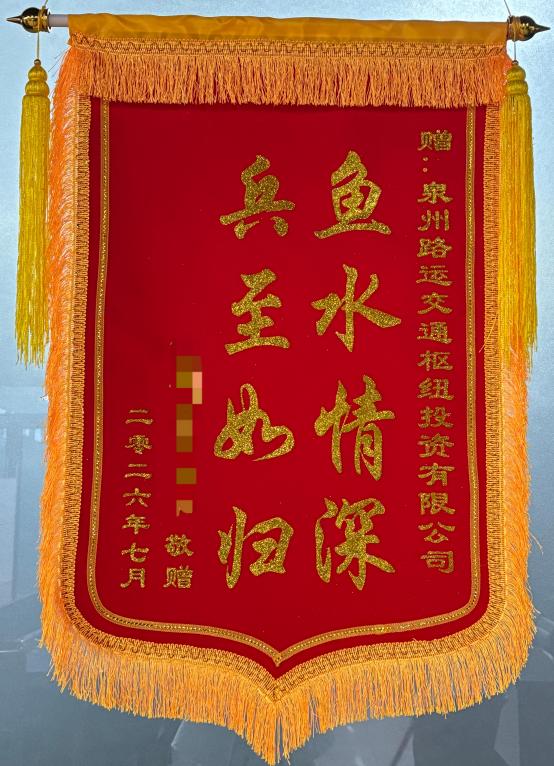 赠：泉州路运交通枢纽投资有限公司
鱼水情深
兵至如归
敬赠
二零二六年七月